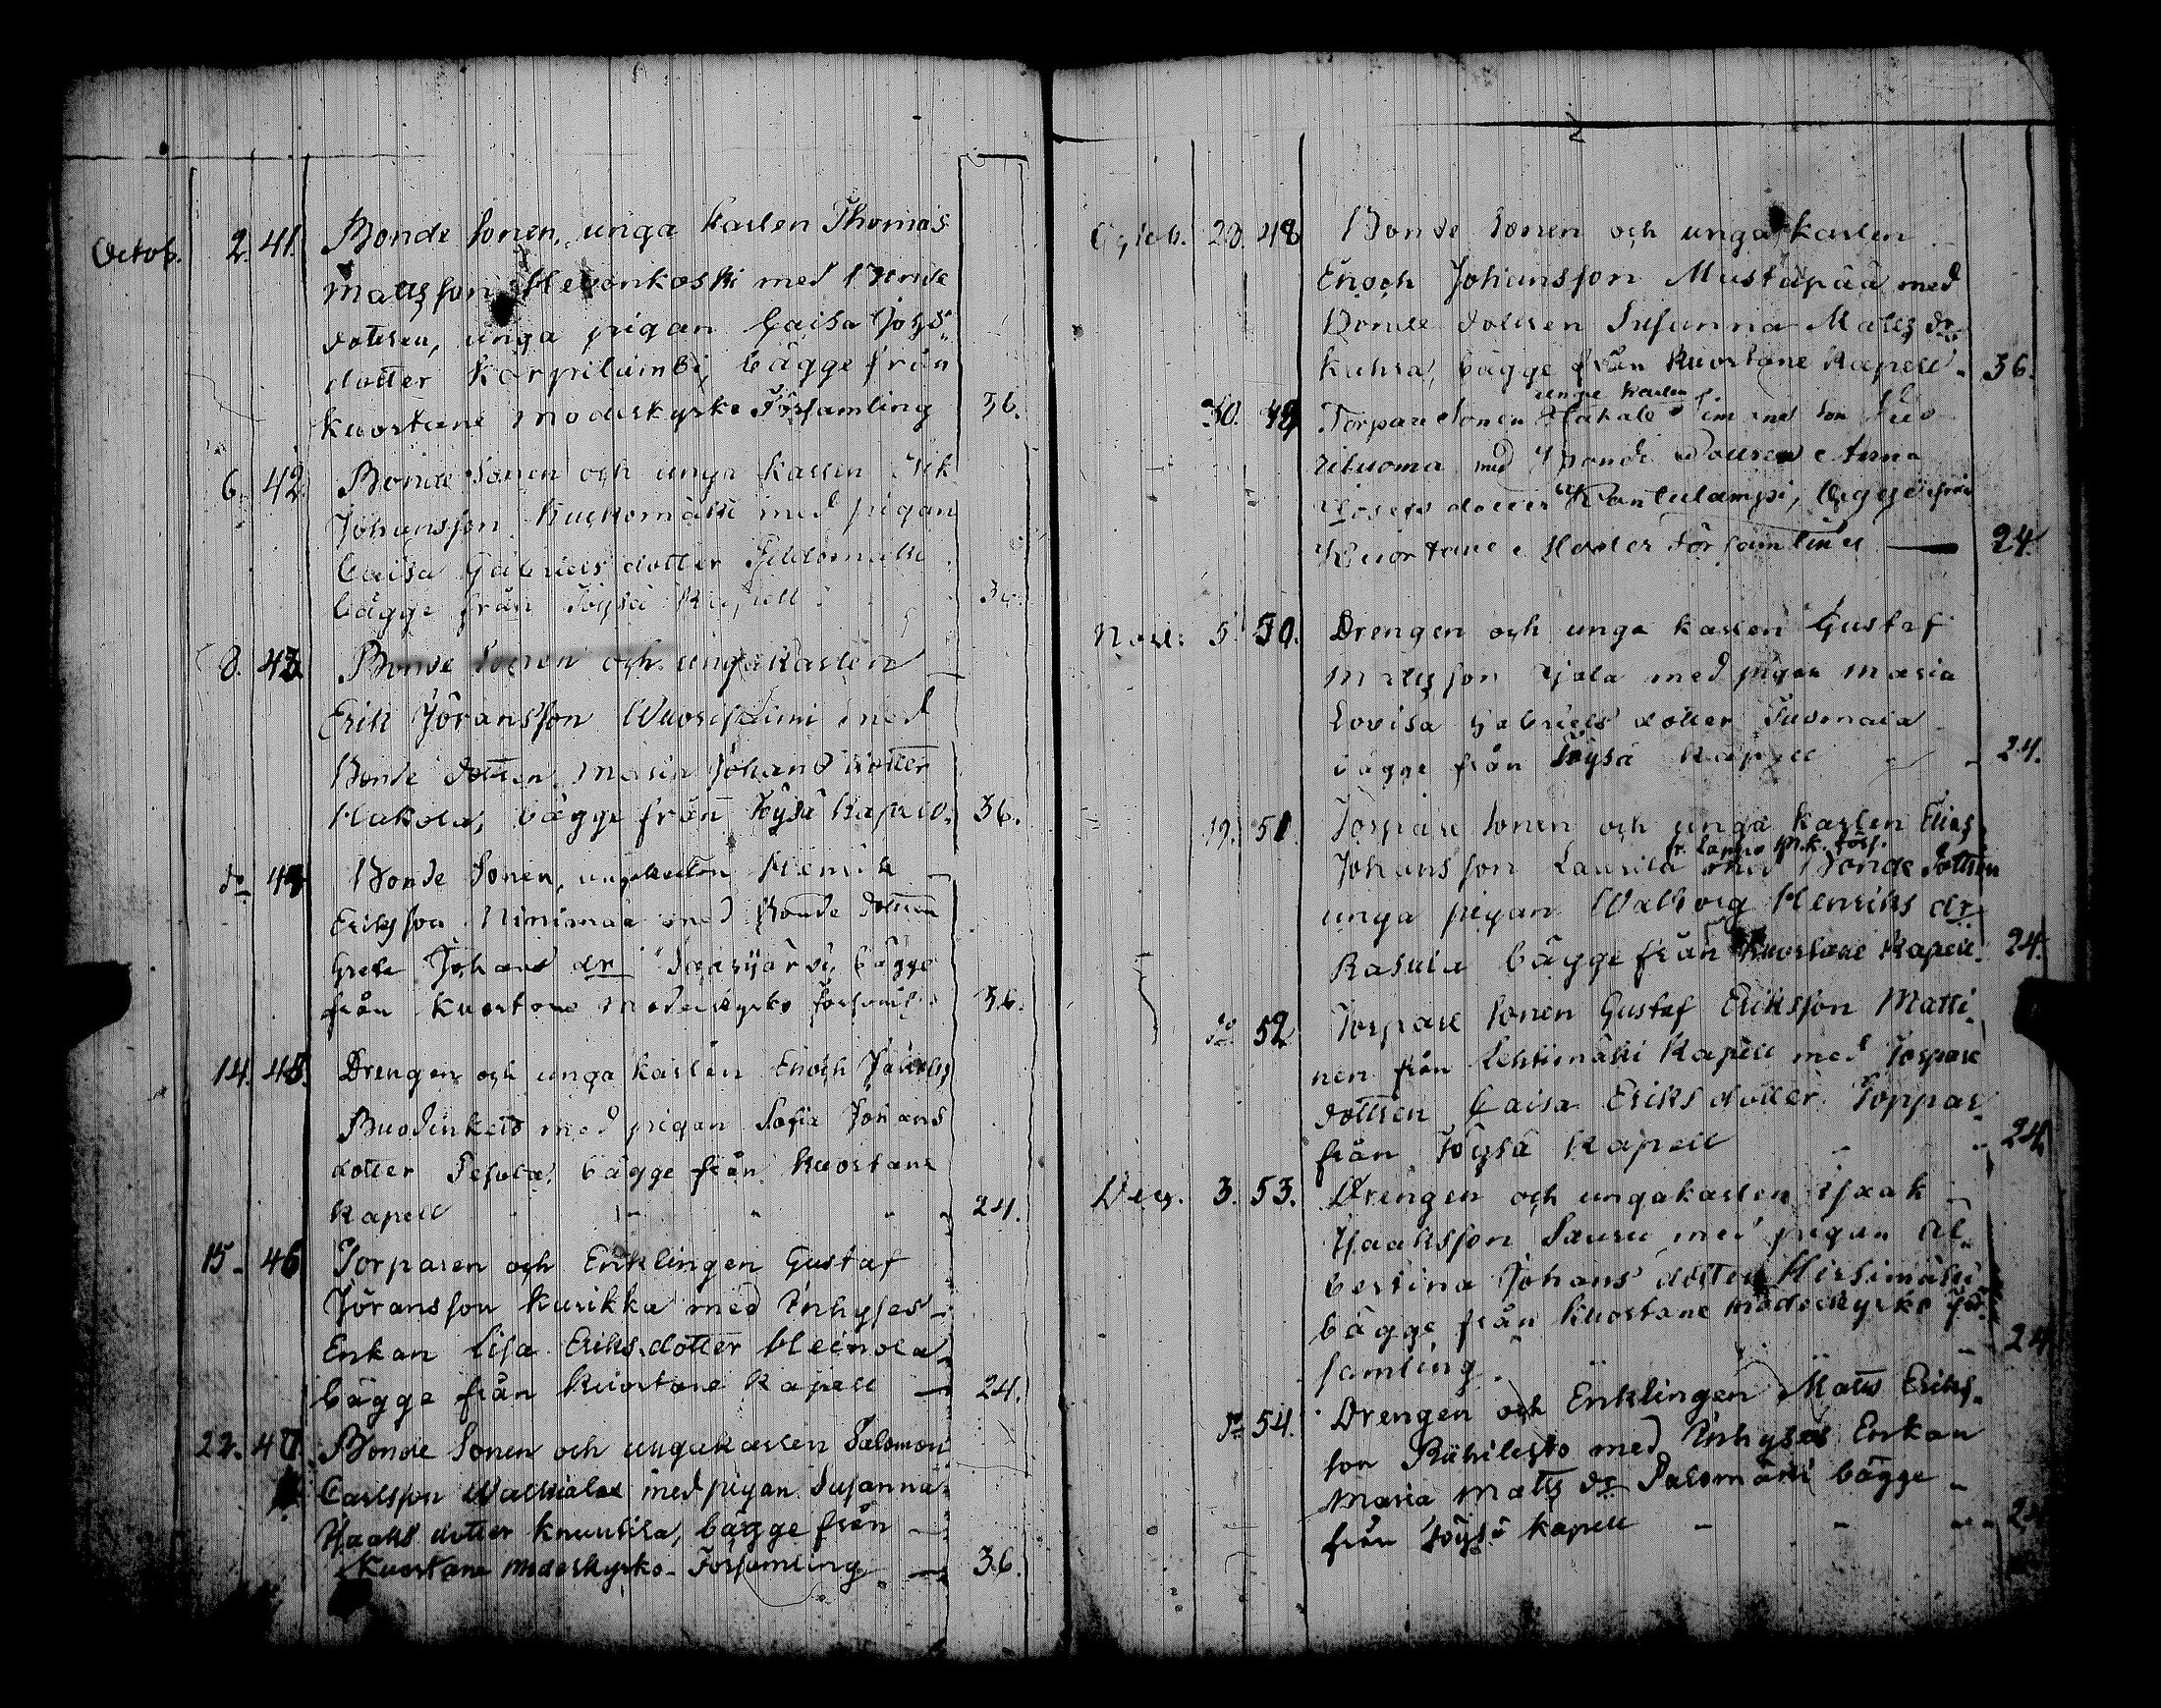 Octob. 2. 41. Bonde Sonen, unga karlen Thomas
Mattsson Hevonkoski med Bonde
dottren, unga pigan Caisa Johs
dotter Karpilambi, bägge från
Kuortane moderkyrko Församling 36.
6. 42. Bonde Sonen och unga karlen Erik
Johansson med pigan
Caisa Gabriels dotter
bägge från Töysä Kapell
8. 43 Bonde Sonen och unga karlen
Erik Jöransson med
Bonde dottren Maria Johans dotter
Hakola, bägge från Töysä Kapell. 36.
do 44 Bonde Sonen, unga karlen Henrik
Eriksson Niinimaa med Bonde dottren
Greta Johans dr Saarijärvi bägge
från Kuortane moderkyrko Församl. 36.
14. 45. Drengen och unga karlen Enoch
med pigan Sofia Johans
dotter bägge från Kuortane
Kapell " " " 24.
15 - 46 Torparen och Enklingen Gustaf
Jöransson Kurikka med Inhyses
Enkan Lisa Eriksdotter Heinola
bägge från Kuortane Kapell — 24.
22. 47. Bonde Sonen och unga karlen Salomon
Carlsson med pigan Susanna
Isaaks dotter Knuutila, bägge från
Kuortane moderkyrko Församling — 36.
Octob. 23. 48 Bonde Sonen och unga karlen
Enoch Johansson Mustapää med
Bonde dottren Susanna Matts dr
bägge från Kuortane Kapell. 36.
unga karlen
30. 49 Torpare Sonen
med Bonde dottren Anna
Josefs dotter Rantulampi, bägge från
Kuortane Moder Församling — 24.
Nov. 5. 50. Drengen och unga karlen Gustaf
Mattsson med pigan Maria
Lovisa Gabriels dotter
bägge från Töysä Kapell 24.
19. 51. Torpare Sonen och unga karlen Elias
fr. Lappo M.k. förs.
Johansson Laurila med Bonde dottren
unga pigan Walborg Henriks dr
Rasula bägge från Kuortane Kapell. 24.
do 52 Torpare Sonen Gustaf Eriksson Matti-
nen från Lehtimäki Kapell med Torpare
dottren Caisa Eriks dotter
från Töysä Kapell 24.
Dec. 3. 53. Drengen och unga karlen Isaak
Isaaksson Sauru med pigan Al-
bertina Johans dotter Hirsimäki
bägge från Kuortane moderkyrko För-
samling. 24.
do 54. Drengen och Enklingen Matts Eriks-
son med Inhyses Enkan
Maria Matts dr Salomäki bägge
från Töysä Kapell - - - 24.